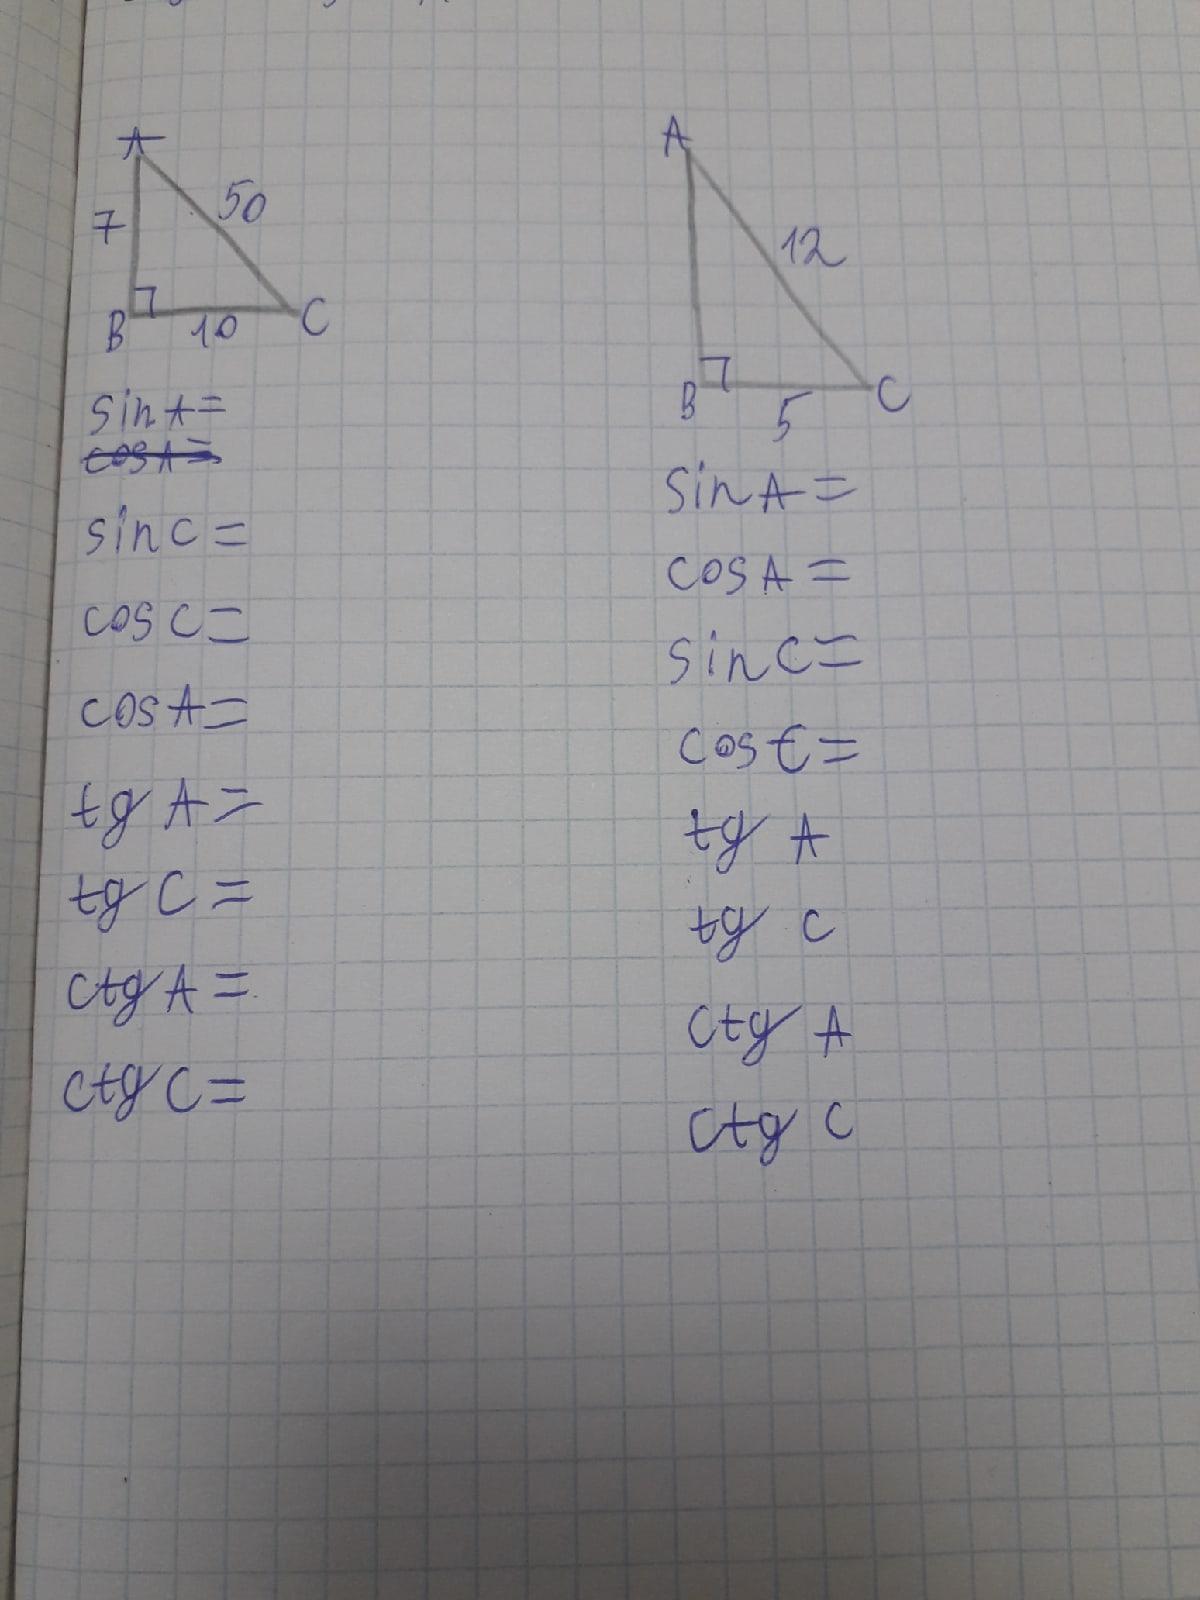 A
50
7
B
10
C
sin A =
cos A =
sin C =
cos C =
cos A =
tg A =
tg C =
ctg A =
ctg C =
A
12
B
5
C
sin A =
cos A =
sin C =
cos C =
tg A
tg C
ctg A
ctg C